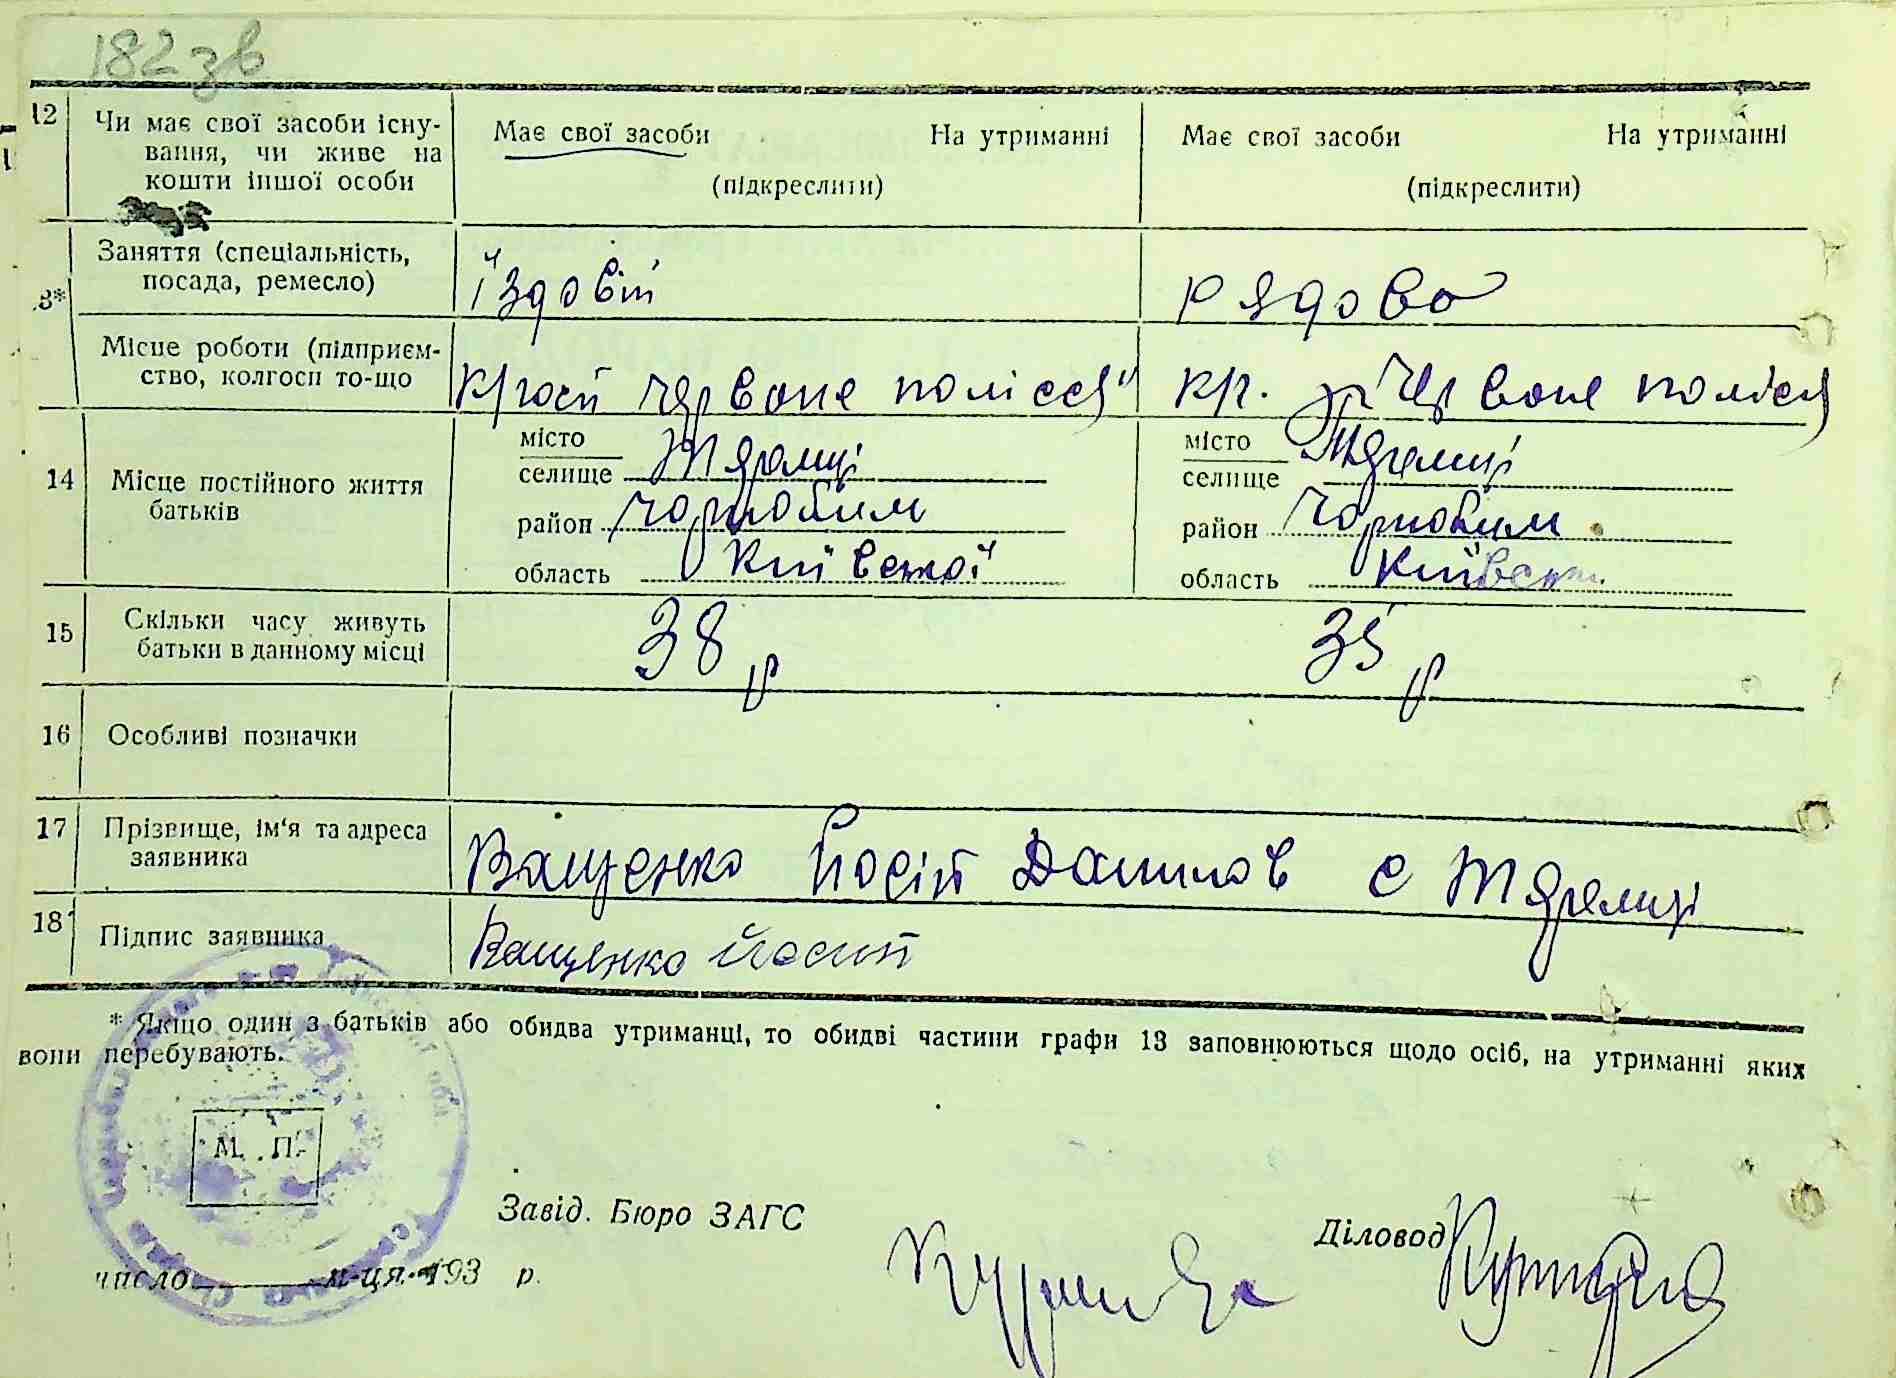 182 зв
12 Чи має свої засоби існу-
вання, чи живе на
кошти іншої особи
Має свої засоби На утриманні
(підкреслити)
Має свої засоби На утриманні
(підкреслити)
3* Заняття (спеціальність,
посада, ремесло)
їздовій
рядово
Місце роботи (підприєм-
ство, колгосп то-що
Кргосп Червоне полісся"
кр. Червоне поліся
14 Місце постійного життя
батьків
місто
селище Тяремці
район Чорнобил
область Київської
місто
селище Тяремці
район Чорнобил
область Київськ
15 Скільки часу живуть
батьки в данному місці
38 р
35 р
16 Особливі позначки
17 Прізвище, ім'я та адреса
заявника
Ващенко Йосіп Данилов с Тяремці
18 Підпис заявника
Ващенко Йосип
* Якщо один з батьків або обидва утриманці, то обидві частини графи 13 заповнюються щодо осіб, на утриманні яких
вони перебувають.
М. П.
Завід. Бюро ЗАГС
Діловод
число м-ця 193 р.